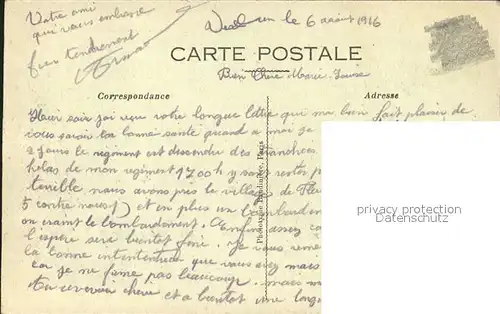 Votre ami
qui vous embrasse
bien tendrement
le 6 août 1916
CARTE POSTALE
Bien Chère Marie Louise
Correspondance
Adresse
Hier soir j'ai reçu votre longue lettre qui m'a bien fait plaisir de
vous savoir en bonne santé quand a moi je
2 jours le regiment est descendu des tranchées
helas de mon regiment 1700 h y sont restés
terrible nous avons pris le village de
5 contre nous) et en plus un bombardem
on craint le bombardement. Enfin assez
l'espère sera bientot fini. Je vous reme
la bonne intention que vous avez mais
car je ne fume pas beaucoup. mais
recevoir cherie et a bientot une longu
Phototypie Baudinière, Paris
privacy protection